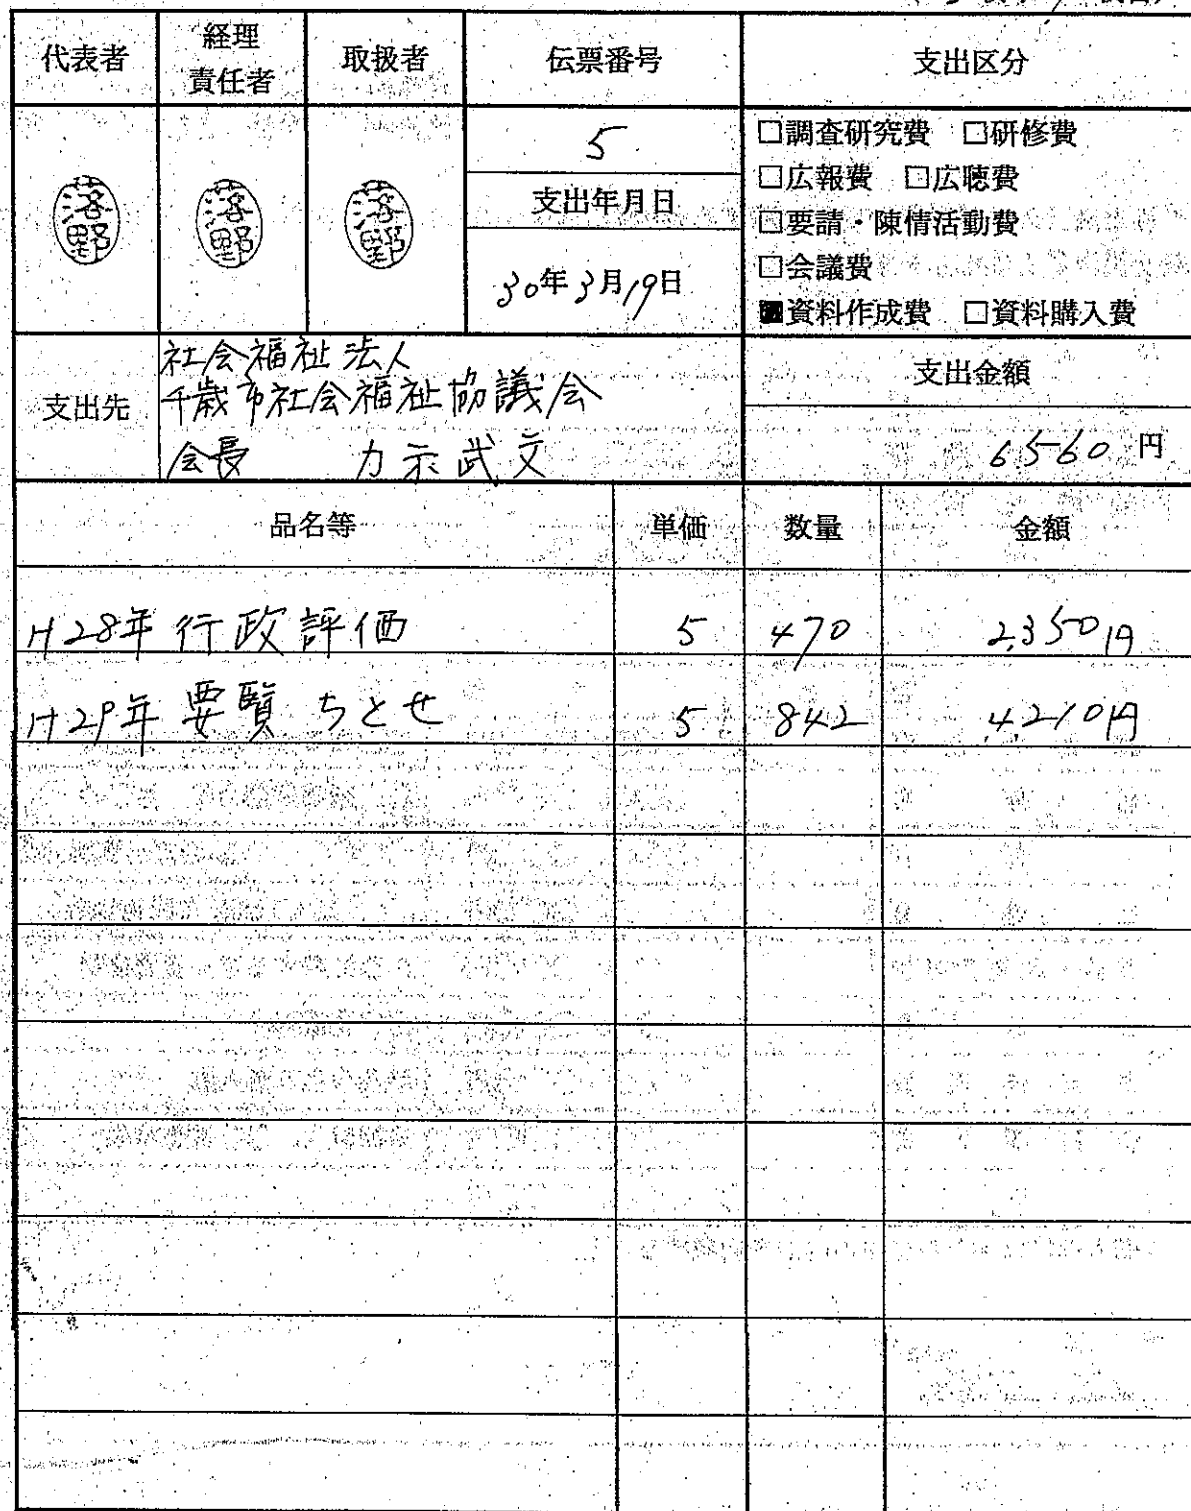 代表者 経理責任者 取扱者 伝票番号 支出区分
落野 落野 落野 5
支出年月日
30年3月19日
□調査研究費 □研修費
□広報費 □広聴費
□要請・陳情活動費
□会議費
■資料作成費 □資料購入費
支出先 社会福祉法人
千歳市社会福祉協議会
会長 力示武文
支出金額
6560円
品名等 単価 数量 金額
H28年 行政評価 5 470 2,350円
H29年 要覧 ちとせ 5 842 4,210円